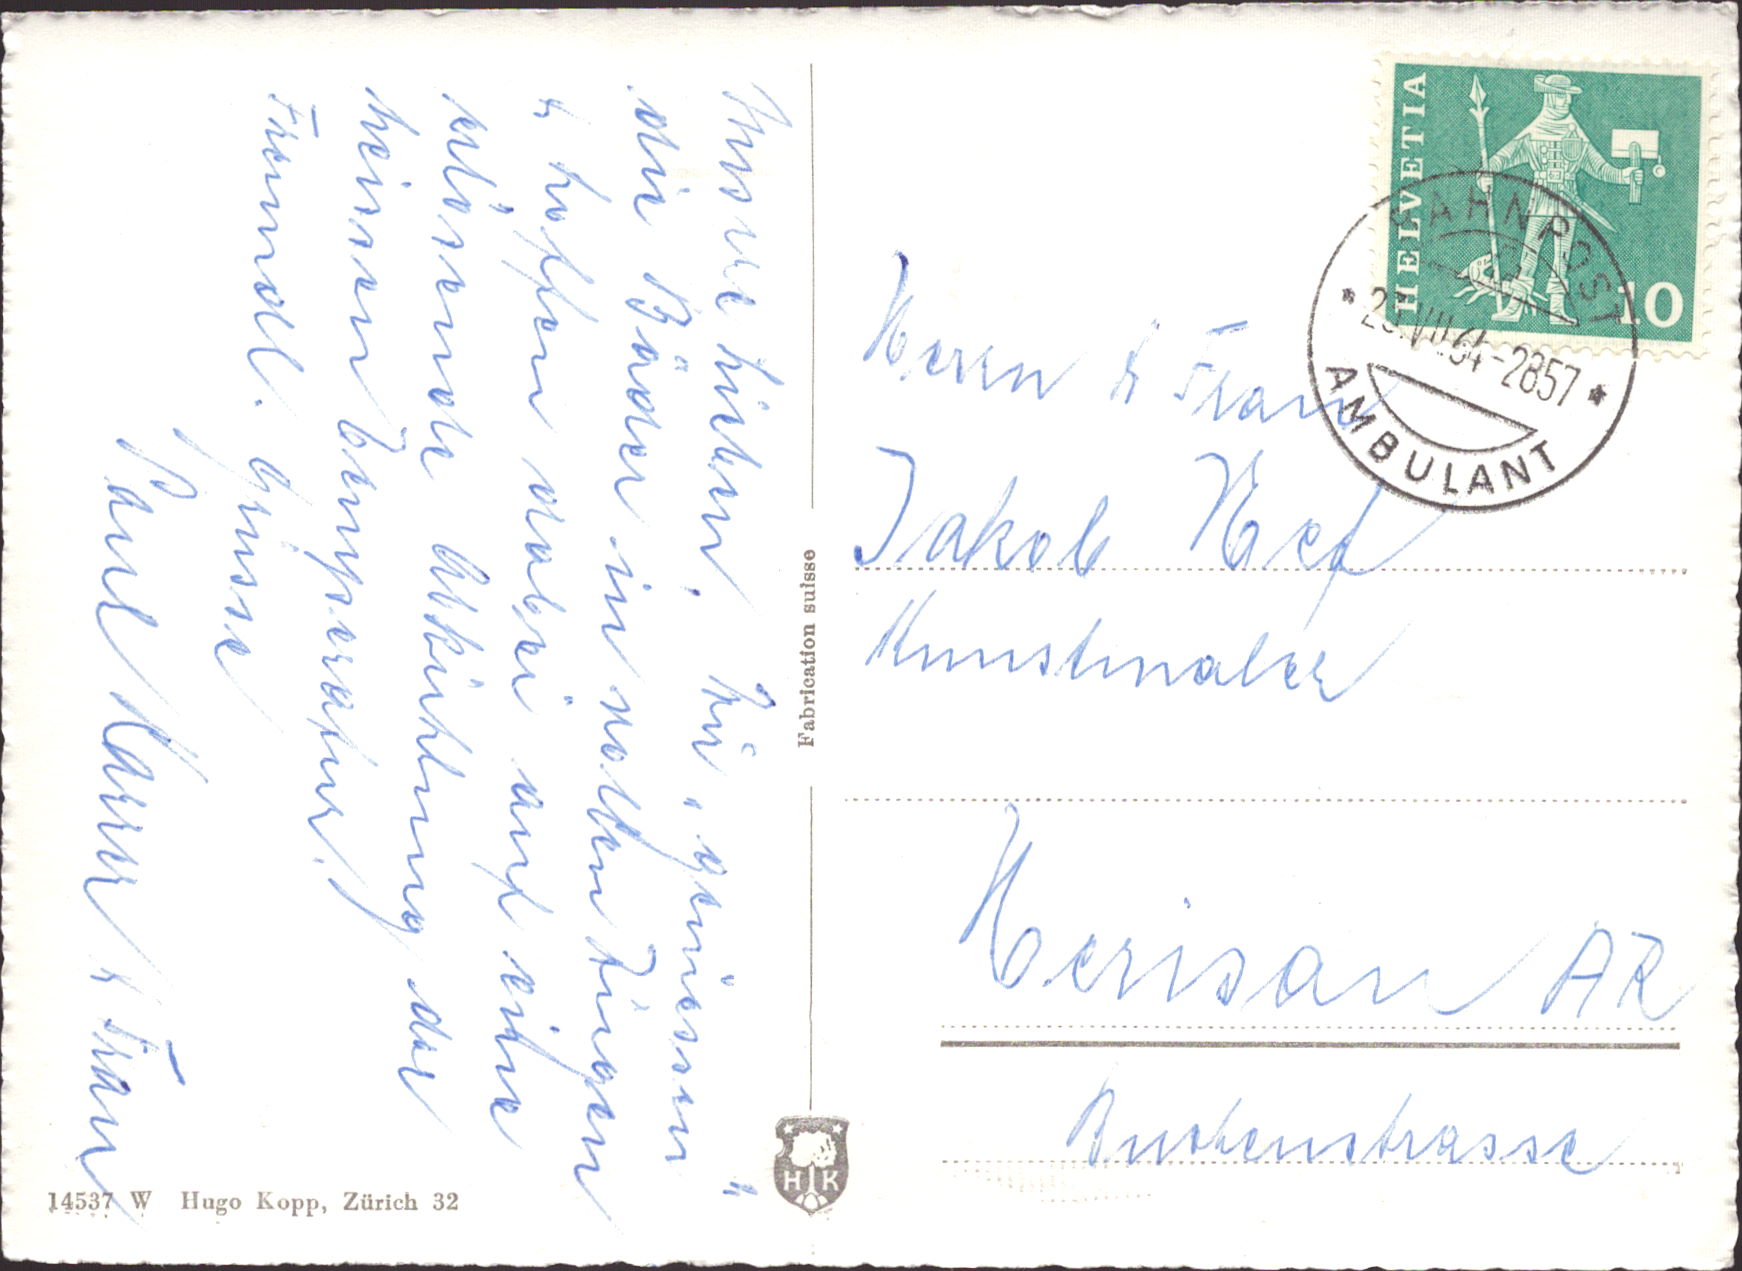 Unsere Lieben. Wir „geniessen"
die Bäder in vollen Zügen
& hoffen dabei auf eine
erlösende Abkühlung der
heissen Temperatur.
Freundl. Grüsse
Paul Karrer & Frau
14537 W Hugo Kopp, Zürich 32
Fabrication suisse
HK
HELVETIA
10
BAHNPOST
23.VIII.64-2857
AMBULANT
Herrn & Frau
Jakob Nef
Kunstmaler
Herisau AR
Buchenstrasse